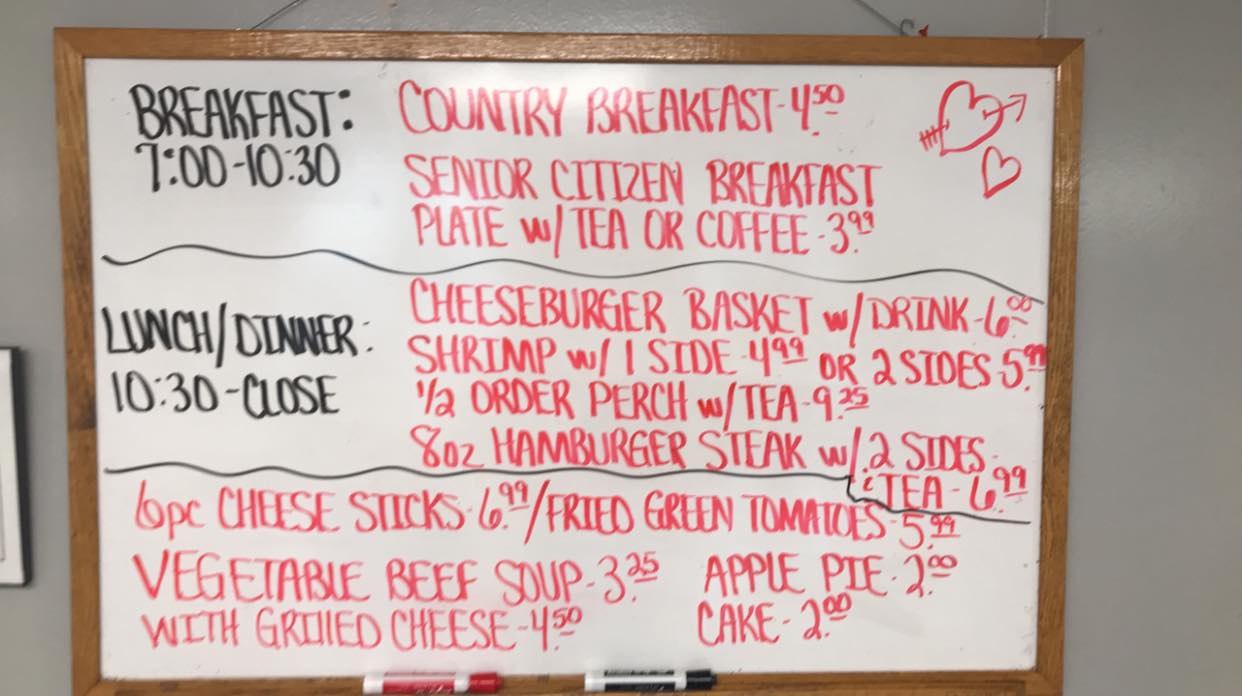 BREAKFAST:
7:00-10:30
COUNTRY BREAKFAST-4.50
SENIOR CITIZEN BREAKFAST
PLATE w/TEA OR COFFEE-3.99
LUNCH/DINNER:
10:30-CLOSE
CHEESEBURGER BASKET w/DRINK-6.00
SHRIMP w/1 SIDE-4.99 OR 2 SIDES-5.99
1/2 ORDER PERCH w/TEA-9.25
8oz HAMBURGER STEAK w/.2 SIDES-
& TEA-6.99
6pc CHEESE STICKS-6.99/FRIED GREEN TOMATOES-5.99
VEGETABLE BEEF SOUP-3.25
WITH GRILLED CHEESE-4.50
APPLE PIE-2.00
CAKE-2.00